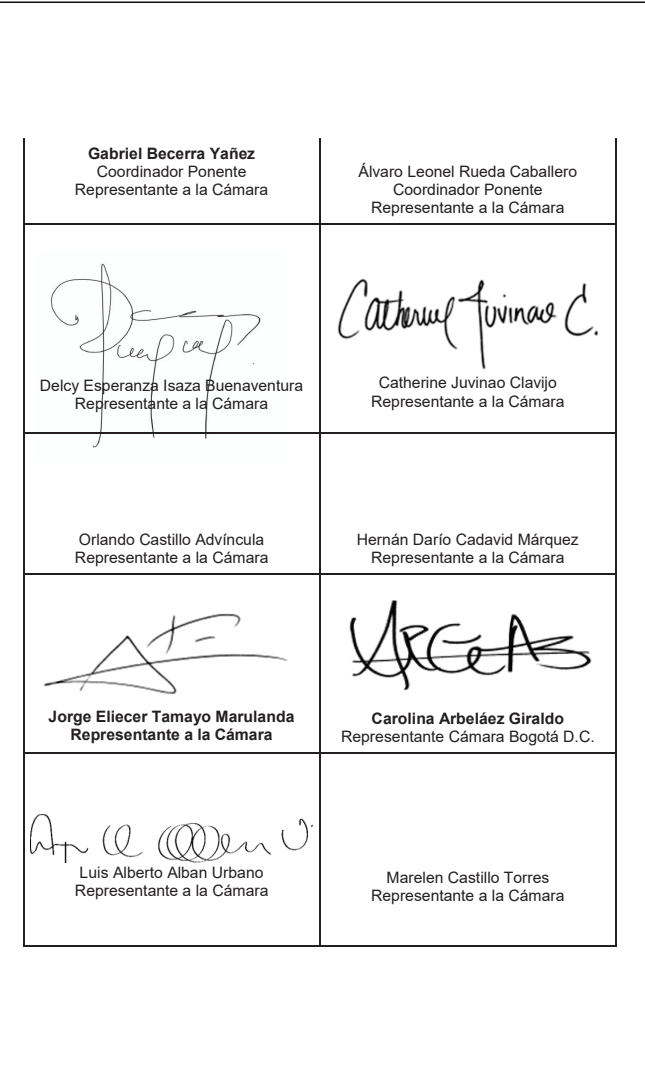 Gabriel Becerra Yañez
Coordinador Ponente
Representante a la Cámara
Álvaro Leonel Rueda Caballero
Coordinador Ponente
Representante a la Cámara
Delcy Esperanza Isaza Buenaventura
Representante a la Cámara
Catherine Juvinao C.
Catherine Juvinao Clavijo
Representante a la Cámara
Orlando Castillo Advíncula
Representante a la Cámara
Hernán Darío Cadavid Márquez
Representante a la Cámara
Jorge Eliecer Tamayo Marulanda
Representante a la Cámara
Carolina Arbeláez Giraldo
Representante Cámara Bogotá D.C.
Luis Alberto Alban Urbano
Representante a la Cámara
Marelen Castillo Torres
Representante a la Cámara